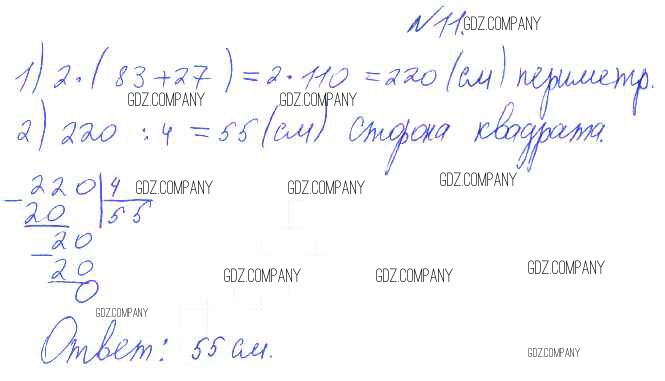 №11. GDZ.COMPANY
1) 2·(83+27)=2·110=220(см) периметр.
GDZ.COMPANY GDZ.COMPANY
2) 220:4=55(см) сторона квадрата.
GDZ.COMPANY GDZ.COMPANY GDZ.COMPANY
-220|4
20 |55
-20
20
0
GDZ.COMPANY GDZ.COMPANY GDZ.COMPANY
GDZ.COMPANY
Ответ: 55 см.
GDZ.COMPANY